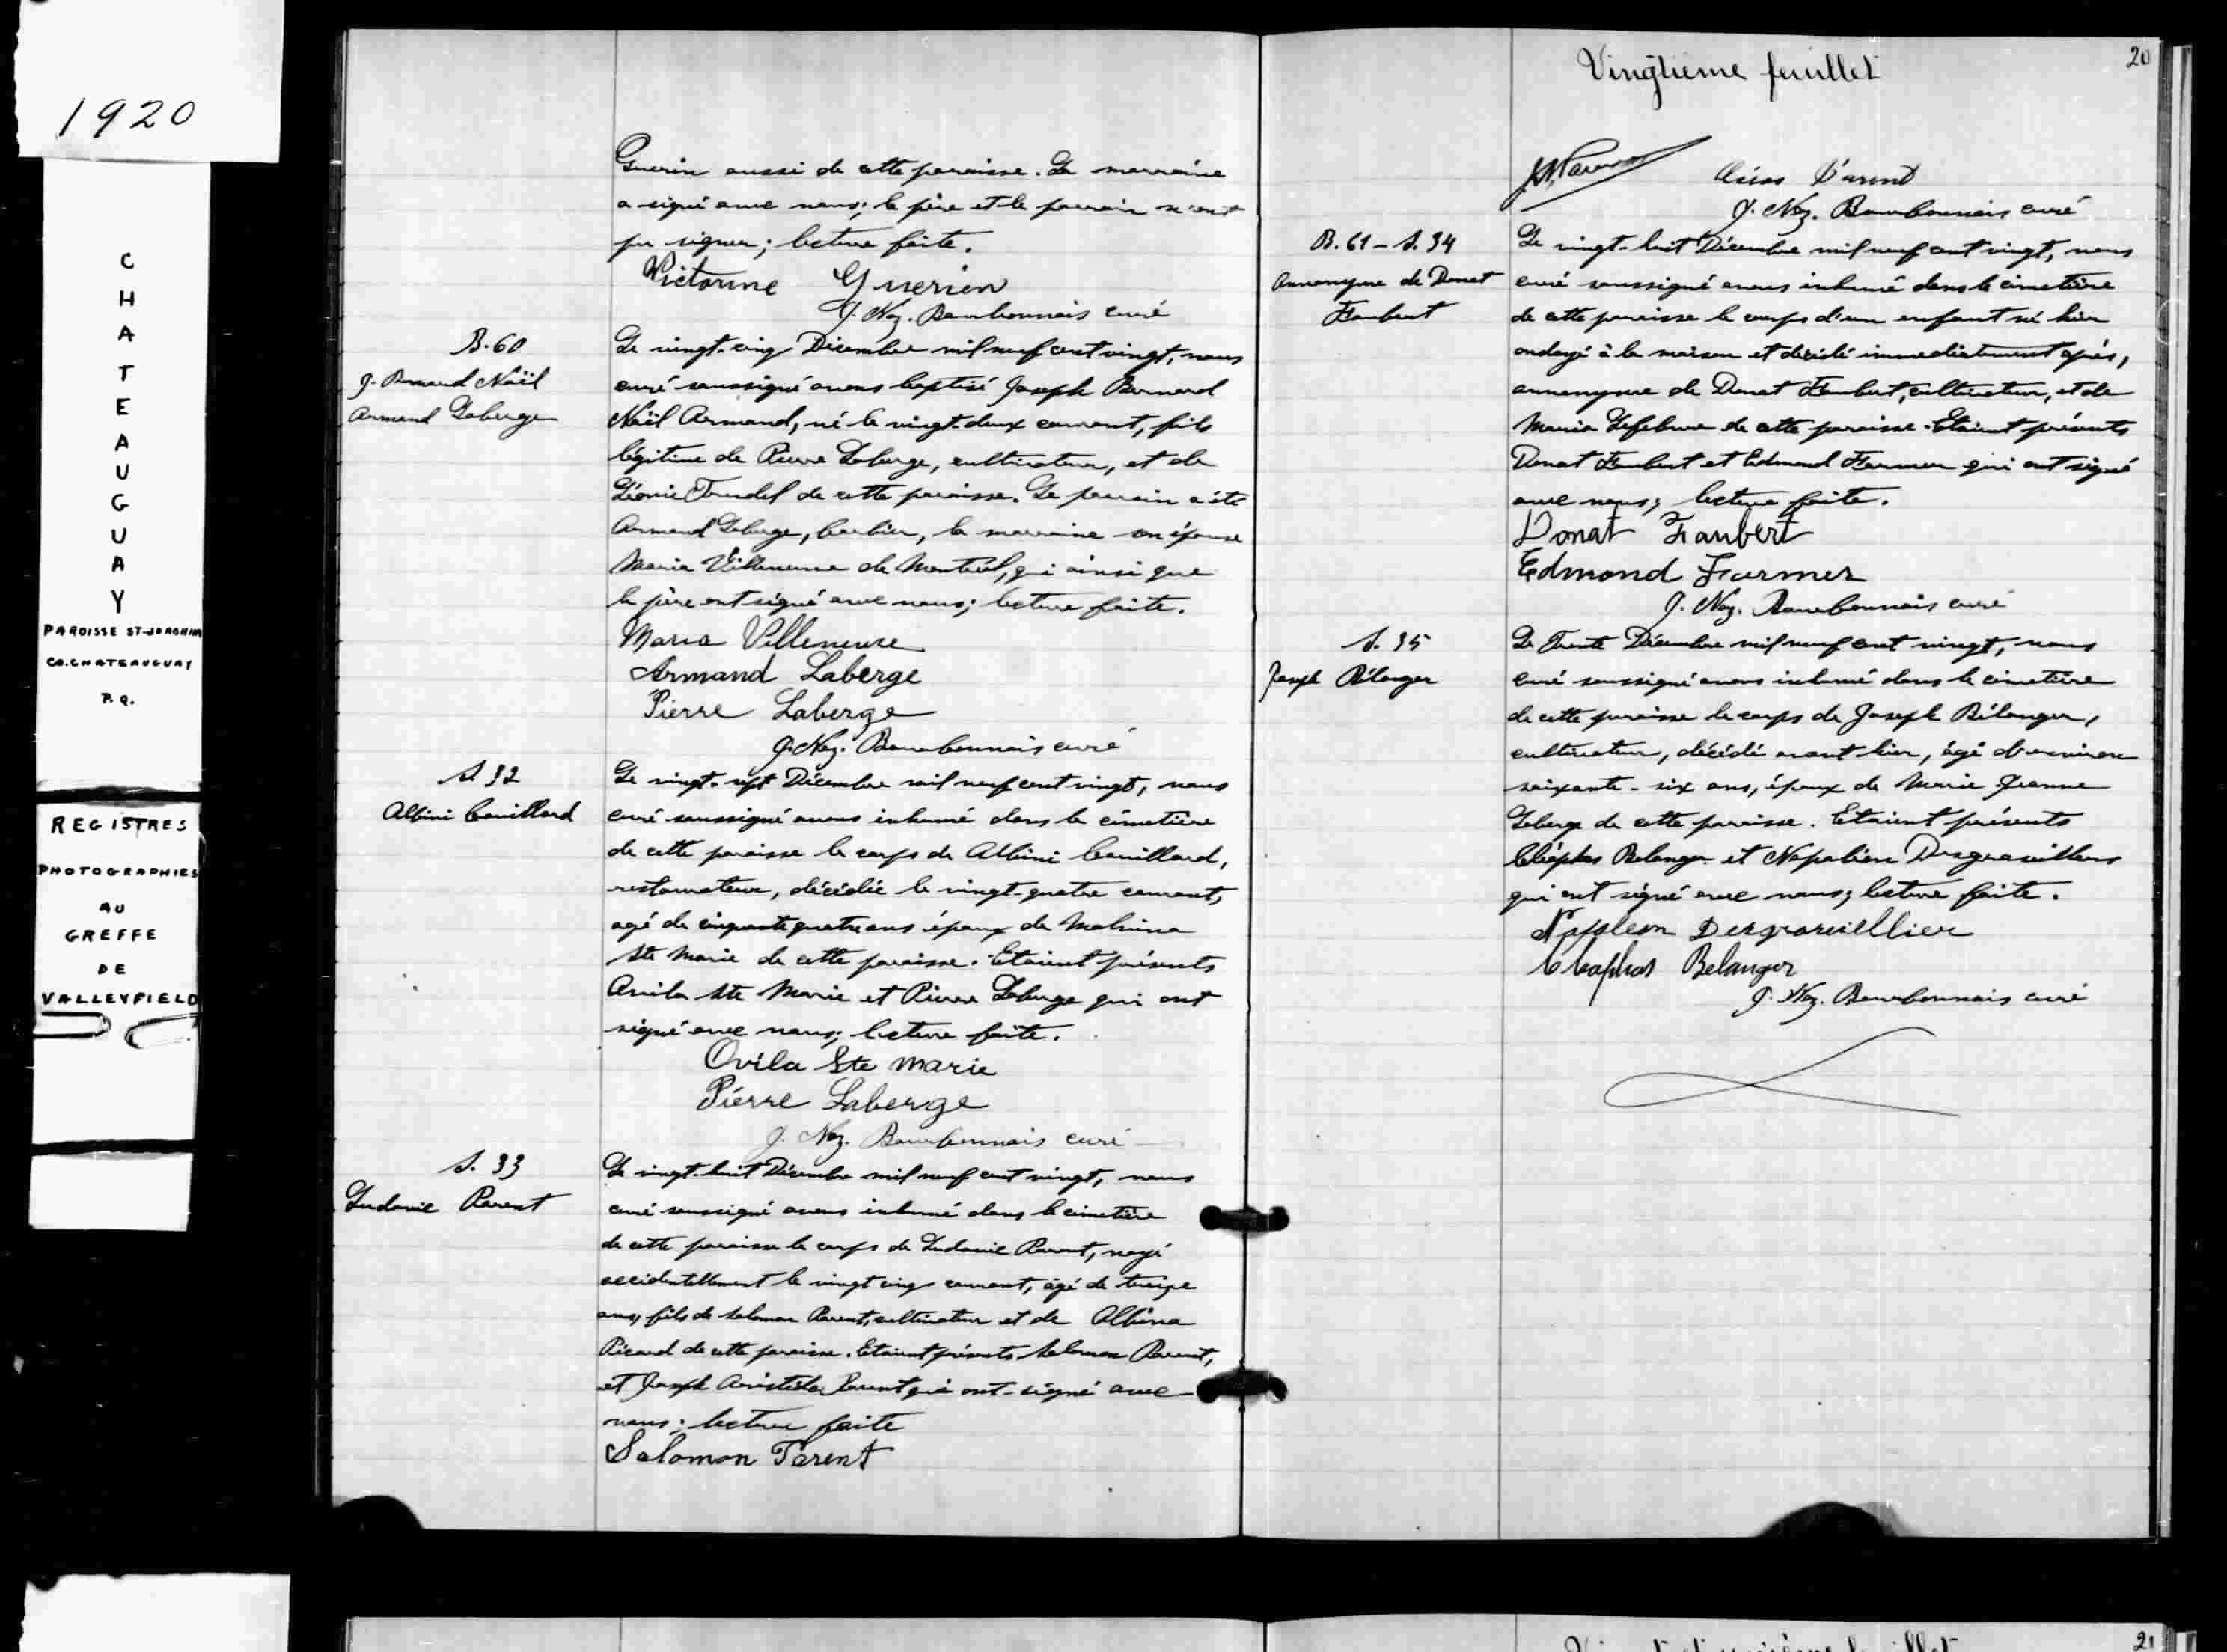 1920
CHATEAUGUAY
PAROISSE ST-JOACHIM
CO. CHATEAUGUAY
P.Q.
REGISTRES
PHOTOGRAPHIES
AU
GREFFE
DE
VALLEYFIELD
Guerin aussi de cette paroisse. La marraine
a signé avec nous; le père et le parrain n'ont
pu signer; lecture faite.
Victorine Guerien
J. Naz. Bourbonnais curé
B. 60
J. Bernard Naël
Armand Laberge
Le vingt-cinq Décembre mil neuf cent vingt, nous
curé soussigné avons baptisé Joseph Bernard
Naël Armand, né le vingt-deux courant, fils
légitime de Pierre Laberge, cultivateur, et de
Léonie Trudel de cette paroisse. Le parrain a été
Armand Laberge, barbier, la marraine son épouse
Maria Villeneuve de Montréal, qui ainsi que
le père ont signé avec nous; lecture faite.
Maria Villeneuve
Armand Laberge
Pierre Laberge
J. Naz. Bourbonnais curé
S. 32
Albini Couillard
Le vingt-sept Décembre mil neuf cent vingt, nous
curé soussigné avons inhumé dans le cimetière
de cette paroisse le corps de Albini Couillard,
restaurateur, décédée le vingt-quatre courant,
agé de cinquante quatre ans époux de Malvina
Ste Marie de cette paroisse. Etaient présents
Avila Ste Marie et Pierre Laberge qui ont
signé avec nous; lecture faite.
Ovila Ste Marie
Pierre Laberge
J. Naz. Bourbonnais curé
S. 33
Ludovic Parent
Le vingt-huit Décembre mil neuf cent vingt, nous
curé soussigné avons inhumé dans le cimetière
de cette paroisse le corps de Ludovic Parent, noyé
accidentellement le vingt cinq courant, âgé de treize
ans, fils de Salomon Parent, cultivateur et de Albina
Picard de cette paroisse. Etaient présents Salomon Parent,
et Joseph Aristide Parent qui ont signé avec
nous; lecture faite
Salomon Parent
Vingtième feuillet
20
Parent
J. Naz. Bourbonnais curé
B. 61 - S. 34
Annonyme de Donat
Faubert
Le vingt-huit Décembre mil neuf cent vingt, nous
curé soussigné avons inhumé dans le cimetière
de cette paroisse le corps d'un enfant né hier
ondoyé à la maison et décédé immediatement après,
annonyme de Donat Faubert, cultivateur, et de
Maria Lefebvre de cette paroisse. Etaient présents
Donat Faubert et Edmond Farmer qui ont signé
avec nous; lecture faite.
Donat Faubert
Edmond Farmer
J. Naz. Bourbonnais curé
S. 35
Joseph Bélanger
Le Trente Décembre mil neuf cent vingt, nous
curé soussigné avons inhumé dans le cimetière
de cette paroisse le corps de Joseph Bélanger,
cultivateur, décédé avant hier, âgé d'environ
soixante-six ans, époux de Marie Jeanne
Laberge de cette paroisse. Etaient présents
Cléophas Belanger et Napoléon Desgroseillers
qui ont signé avec nous; lecture faite.
Napoleon Desgroseillier
Cleophas Belanger
J. Naz. Bourbonnais curé
21